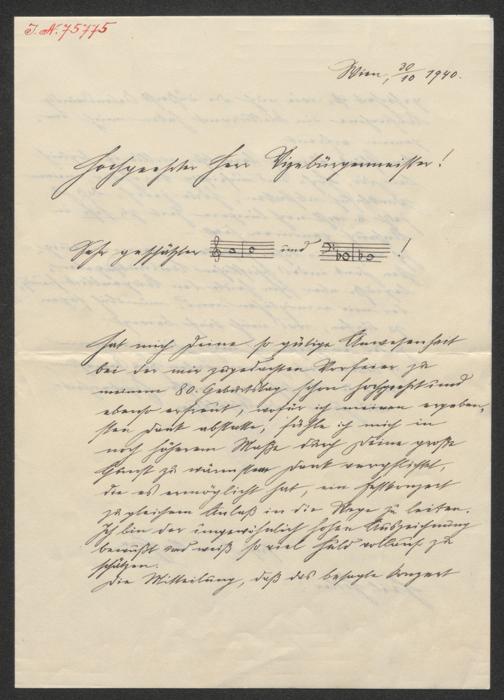 J. N. 75775
Wien, 30/10 1940.
Hochgeehrter Herr Vizebürgermeister!
Sehr geschätzter und !
Hat mich Deine so gütige Anwesenheit
bei der mir zugedachten Vorfeier zu
meinem 80. Geburtstag schon hochgeehrt und
ebenso erfreut, wofür ich meinen ergeben-
sten Dank abstatte, fühle ich mich in
noch höherem Maße durch Deine große
Gunst zu wärmstem Dank verpflichtet,
die es ermöglicht hat, ein Festkonzert
zu gleichem Anlaß in die Wege zu leiten.
Ich bin der ungewöhnlich hohen Auszeichnung
bewußt und weiß so viel Huld vollauf zu
schätzen.
Die Mitteilung, daß das besagte Konzert